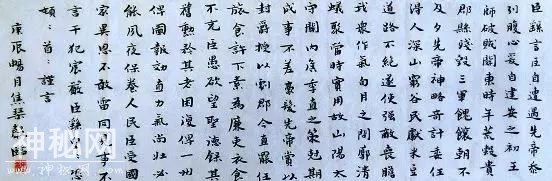 臣繇言臣自遭遇先帝忝
列腹心爰自建安之初王
師破賊關東時年荒穀貴
郡縣殘毀三軍餽饟朝不
及夕先帝神略奇計委任
得人深山窮谷民獻米豆
道路不絕遂使強敵喪膽
我眾作氣旬月之間廓清
蟻聚當時實用故山陽太
守關內侯季直之策剋期
成事不差豪髮先帝賞以
封爵授以劇郡今直罷任
旅食許下素為廉吏衣食
不充臣愚欲望聖德錄其
舊勳矜其老困復俾一州
俾圖報效直力氣尚壯必
能夙夜保養人民臣受國
家異恩不敢雷同見事不
言干犯宸嚴臣繇皇恐
頓首謹言
庚辰暢月焦琴臨
神秘网